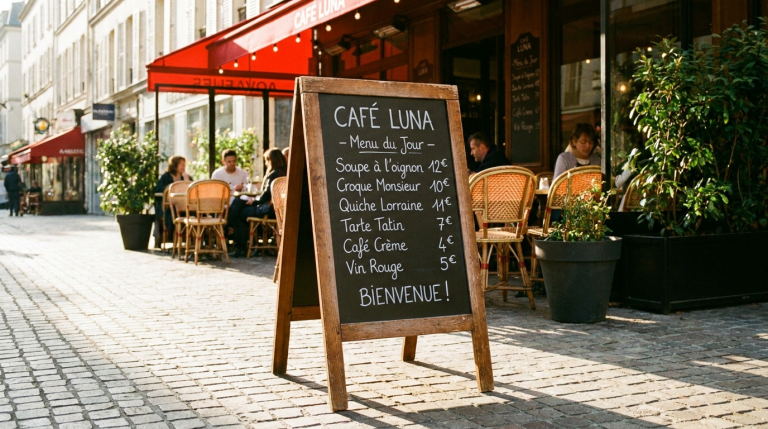 CAFÉ LUNA
CAFÉ LUNA
- Menu du Jour -
Soupe à l'oignon 12€
Croque Monsieur 10€
Quiche Lorraine 11€
Tarte Tatin 7€
Café Crème 4€
Vin Rouge 5€
BIENVENUE!
CAFÉ LUNA
Menu du Jour
Vin Rouge